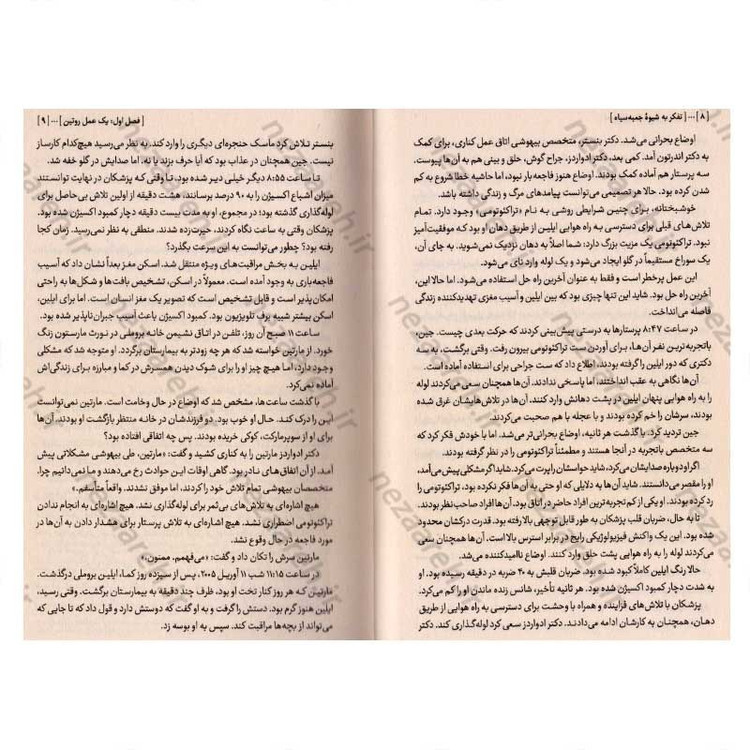 [ ۸ ] ... [ تفکر به شیوهٔ جعبه‌سیاه ]
اوضاع بحرانی می‌شد. دکتر بنستر، متخصص بیهوشی اتاق عمل کناری، برای کمک
به دکتر اندرتون آمد. کمی بعد، دکتر ادواردز، جراح گوش، حلق و بینی هم به آن‌ها پیوست.
سه پرستار هم آماده کمک بودند. اوضاع هنوز فاجعه بار نبود، اما حاشیه خطا شروع به کم
شدن کرده بود. حالا هر تصمیمی می‌توانست پیامدهای مرگ و زندگی داشته باشد.
خوشبختانه، برای چنین شرایطی روشی به نام «تراکئوتومی» وجود دارد. تمام
تلاش‌های قبلی برای دسترسی به راه هوایی ایلین از طریق دهان او بود که موفقیت‌آمیز
نبود. تراکئوتومی یک مزیت بزرگ دارد: شما اصلاً به دهان نزدیک نمی‌شوید. به جای آن،
یک سوراخ مستقیماً در گلو ایجاد می‌شود و یک لوله وارد نای می‌شود.
این عمل پرخطر است و فقط به عنوان آخرین راه حل استفاده می‌شود. اما حالا این،
آخرین راه حل بود. شاید این تنها چیزی بود که بین ایلین و آسیب مغزی تهدیدکننده زندگی
فاصله می‌انداخت.
در ساعت ۸:۴۷ پرستارها به درستی پیش‌بینی کردند که حرکت بعدی چیست. جین،
باتجربه‌ترین نفر آن‌ها، برای آوردن ست تراکئوتومی بیرون رفت. وقتی برگشت، به سه
دکتری که دور ایلین را گرفته بودند، اطلاع داد که ست جراحی برای استفاده آماده است.
آن‌ها نگاهی به عقب انداختند، اما پاسخی ندادند. آن‌ها همچنان سعی می‌کردند لوله
را به راه هوایی پنهان ایلین در پشت دهانش وارد کنند. آن‌ها در تلاش‌هایشان غرق شده
بودند، سرشان را خم کرده بودند و با عجله با هم صحبت می‌کردند.
جین تردید کرد. با گذشت هر ثانیه، اوضاع بحرانی‌تر می‌شد. اما با خودش فکر کرد که
سه متخصص باتجربه در آنجا هستند و مطمئناً تراکئوتومی را در نظر گرفته بودند.
اگر او دوباره صدایشان می‌کرد، شاید حواسشان را پرت می‌کرد. شاید اگر مشکلی پیش می‌آمد،
او را مقصر می‌دانستند. شاید آن‌ها به دلایلی که او حتی به آن‌ها فکر نکرده بود، تراکئوتومی را
رد کرده بودند. او یکی از کم تجربه‌ترین افراد حاضر در اتاق بود. آن‌ها افراد صاحب‌نظر بودند.
تا به حال، ضربان قلب پزشکان به طور قابل توجهی بالا رفته بود. قدرت درکشان محدود
می‌شد. این یک واکنش فیزیولوژیکی رایج در برابر استرس بالا است. آن‌ها همچنان سعی
می‌کردند لوله را به راه هوایی پشت حلق وارد کنند. اوضاع ناامیدکننده می‌شد.
حالا رنگ ایلین کاملاً کبود شده بود. ضربان قلبش به ۴۰ ضربه در دقیقه رسیده بود. او
به شدت دچار کمبود اکسیژن شده بود. هر ثانیه تأخیر، شانس زنده ماندن او را کم می‌کرد.
پزشکان با تلاش‌های فزاینده و همراه با وحشت برای دسترسی به راه هوایی از طریق
دهان، همچنان به کارشان ادامه می‌دادند. دکتر ادواردز سعی کرد لوله‌گذاری کند. دکتر
[ فصل اول: یک عمل روتین ] ... [ ۹ ]
بنستر تلاش کرد ماسک حنجره‌ای دیگری را وارد کند. به نظر می‌رسید هیچ‌کدام کارساز
نیست. جین همچنان در عذاب بود که آیا حرف بزند یا نه. اما صدایش در گلو خفه شد.
تا ساعت ۸:۵۵ دیگر خیلی دیر شده بود. تا وقتی که پزشکان در نهایت توانستند
میزان اشباع اکسیژن را به ۹۰ درصد برسانند، هشت دقیقه از اولین تلاش بی‌حاصل برای
لوله‌گذاری گذشته بود؛ در مجموع، او به مدت بیست دقیقه دچار کمبود اکسیژن شده بود.
پزشکان وقتی به ساعت نگاه کردند، حیرت‌زده شدند. منطقی به نظر نمی‌رسید. زمان کجا
رفته بود؟ چطور می‌توانست به این سرعت بگذرد؟
ایلین به بخش مراقبت‌های ویژه منتقل شد. اسکن مغز بعداً نشان داد که آسیب
فاجعه‌باری به وجود آمده است. معمولاً در اسکن، تشخیص بافت‌ها و شکل‌ها به راحتی
امکان‌پذیر است و قابل تشخیص است که تصویر یک مغز انسان است. اما برای ایلین،
اسکن بیشتر شبیه برفک تلویزیون بود. کمبود اکسیژن باعث آسیب جبران‌ناپذیر شده بود.
ساعت ۱۱ صبح آن روز، تلفن در اتاق نشیمن خانه بروملی در نورث مارستون زنگ
خورد. از مارتین خواسته شد که هر چه زودتر به بیمارستان برگردد. او متوجه شد که مشکلی
وجود دارد، اما هیچ چیز او را برای شوک دیدن همسرش در کما و مبارزه برای زندگی‌اش
آماده نمی‌کرد.
با گذشت ساعت‌ها، مشخص شد که اوضاع در حال وخامت است. مارتین نمی‌توانست
این را درک کند. حال او خوب بود. دو فرزندشان در خانه منتظر بازگشت او بودند. آن‌ها
برای او از سوپرمارکت، کوکی خریده بودند. پس چه اتفاقی افتاده بود؟
دکتر ادواردز مارتین را به کناری کشید و گفت: «مارتین، طی بیهوشی مشکلاتی پیش
آمد. از آن اتفاق‌های نادر بود. گاهی اوقات این حوادث رخ می‌دهند و ما نمی‌دانیم چرا.
متخصصان بیهوشی تمام تلاش خود را کردند، اما موفق نشدند. واقعاً متأسفم.»
هیچ اشاره‌ای به تلاش‌های بی ثمر برای لوله‌گذاری نشد. هیچ اشاره‌ای به انجام ندادن
تراکئوتومی اضطراری نشد. هیچ اشاره‌ای به تلاش پرستار برای هشدار دادن به آن‌ها در
مورد فاجعه در حال وقوع نشد.
مارتین سرش را تکان داد و گفت: «می‌فهمم. ممنون.»
در ساعت ۱۱:۱۵ شب ۱۱ آوریل ۲۰۰۵، پس از سیزده روز کما، ایلین بروملی درگذشت.
مارتین که هر روز کنار تخت او بود، ظرف چند دقیقه به بیمارستان برگشت. وقتی رسید،
ایلین هنوز گرم بود. دستش را گرفت و به او گفت که دوستش دارد و قول داد که تا جایی که
می‌تواند از بچه‌ها مراقبت کند. سپس به او بوسه زد.
nezaareh.ir